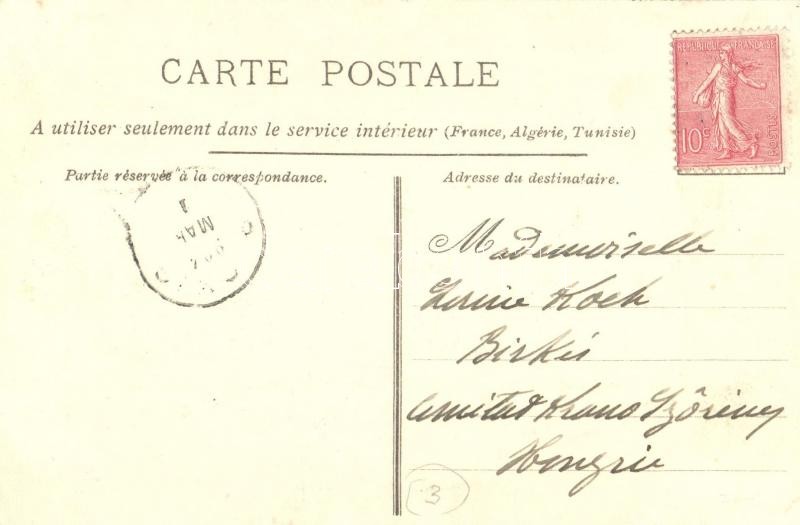 RÉPUBLIQUE FRANÇAISE
10c
POSTES
CARTE POSTALE
A utiliser seulement dans le service intérieur (France, Algérie, Tunisie)
Partie réservée à la correspondance.
Adresse du destinataire.
1
MAR
Mademoiselle
Koch
Birkis
Krasso Szörény
Hongrie
3